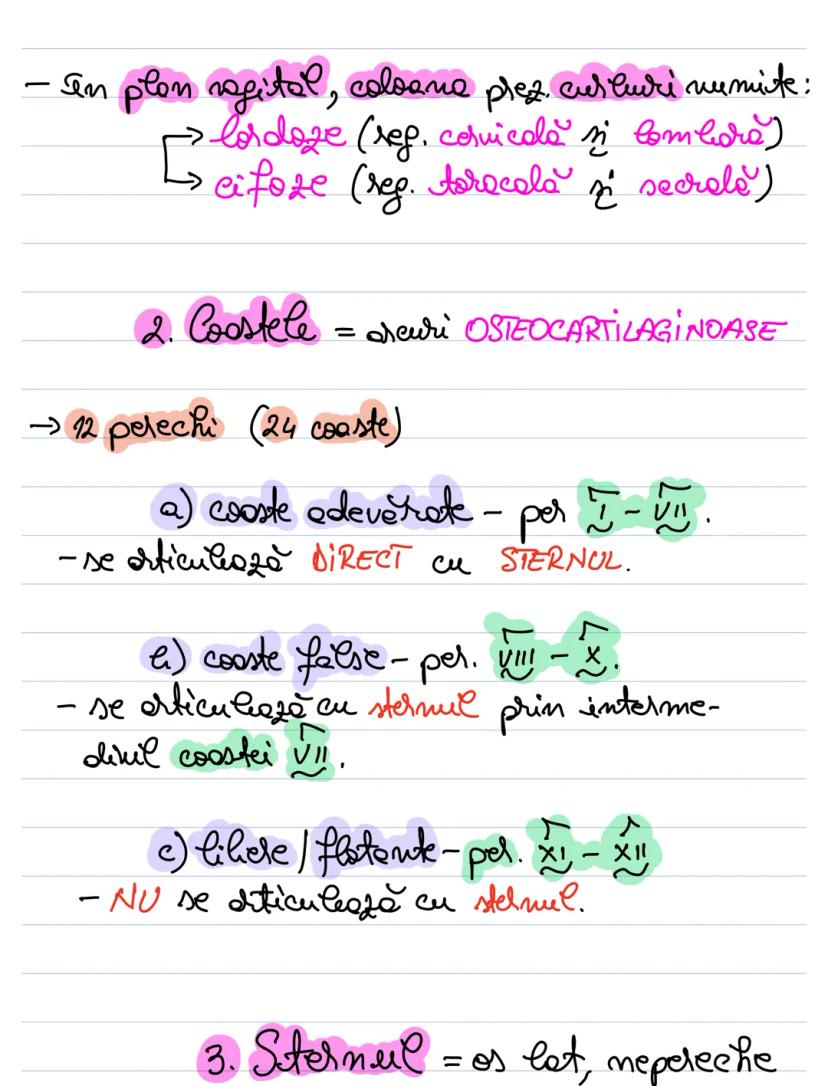 - În plan sagital, coloana prez. curburi numite:
→ lordoze (reg. cervicală și lombară)
→ cifoze (reg. toracală și sacrală)
2. Coastele = arcuri OSTEOCARTILAGINOASE
→ 12 perechi (24 coaste)
a) coaste adevărate - per I - VII.
- se articulează DIRECT cu STERNUL.
b) coaste false - per. VIII - X.
- se articulează cu sternul prin interme-
diul coastei VII.
c) libere / flotante - per. XI - XII
- NU se articulează cu sternul.
3. Sternul = os lat, nepereche